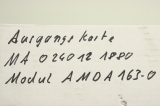 Ausgangskarte
MA 024012 1880
Modul AMOA 163-0